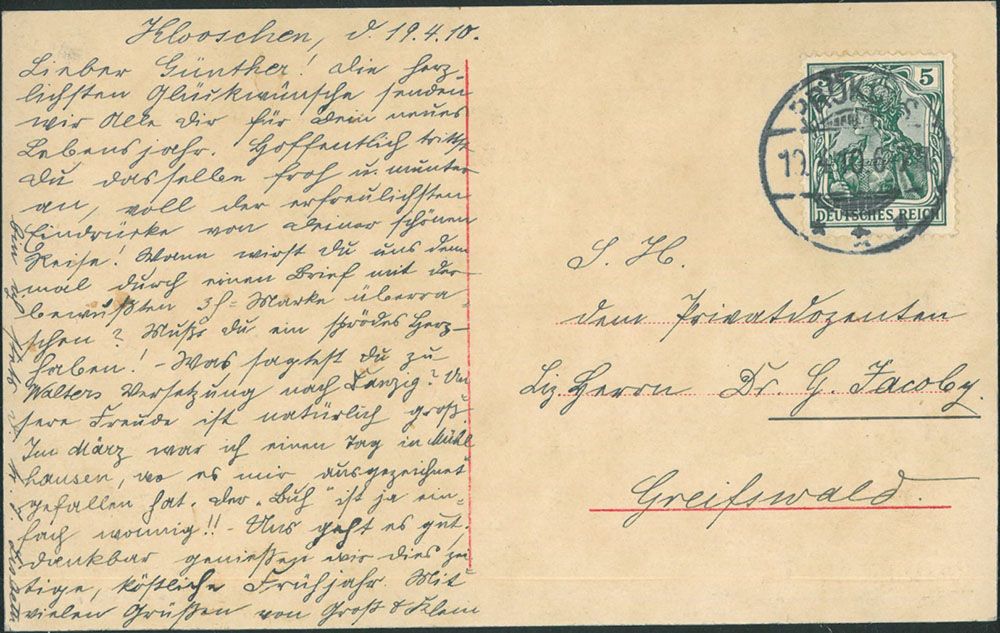 Klooschen, d. 19.4.10.
Lieber Günther! Die herz-
lichsten Glückwünsche senden
wir Alle dir für dein neues
Lebensjahr. Hoffentlich trittst
du dasselbe froh u. munter
an, voll der erfreulichsten
Eindrücke von deiner schönen
Reise! Wann wirst du uns denn
mal durch einen Brief mit der
bewußten 3 Marke überra-
schen? Mußt du ein sprödes Herz
haben! - Was sagtest du zu
Walters Versetzung nach Danzig? Un
sere Freude ist natürlich groß.
Im März war ich einen Tag in Mühl
hausen, wo es mir ausgezeichnet
gefallen hat. Der "Buh" ist ja ein-
fach wonnig!! - Uns geht es gut,
dankbar genießen wir dies zei
tige, köstliche Frühjahr. Mit
vielen Grüßen von Groß & Klein
5
DEUTSCHES REICH
PRÖKULS
19.4.10.
S. H.
dem Privatdozenten
Liz. Herrn Dr. G. Jacoby.
Greifswald.